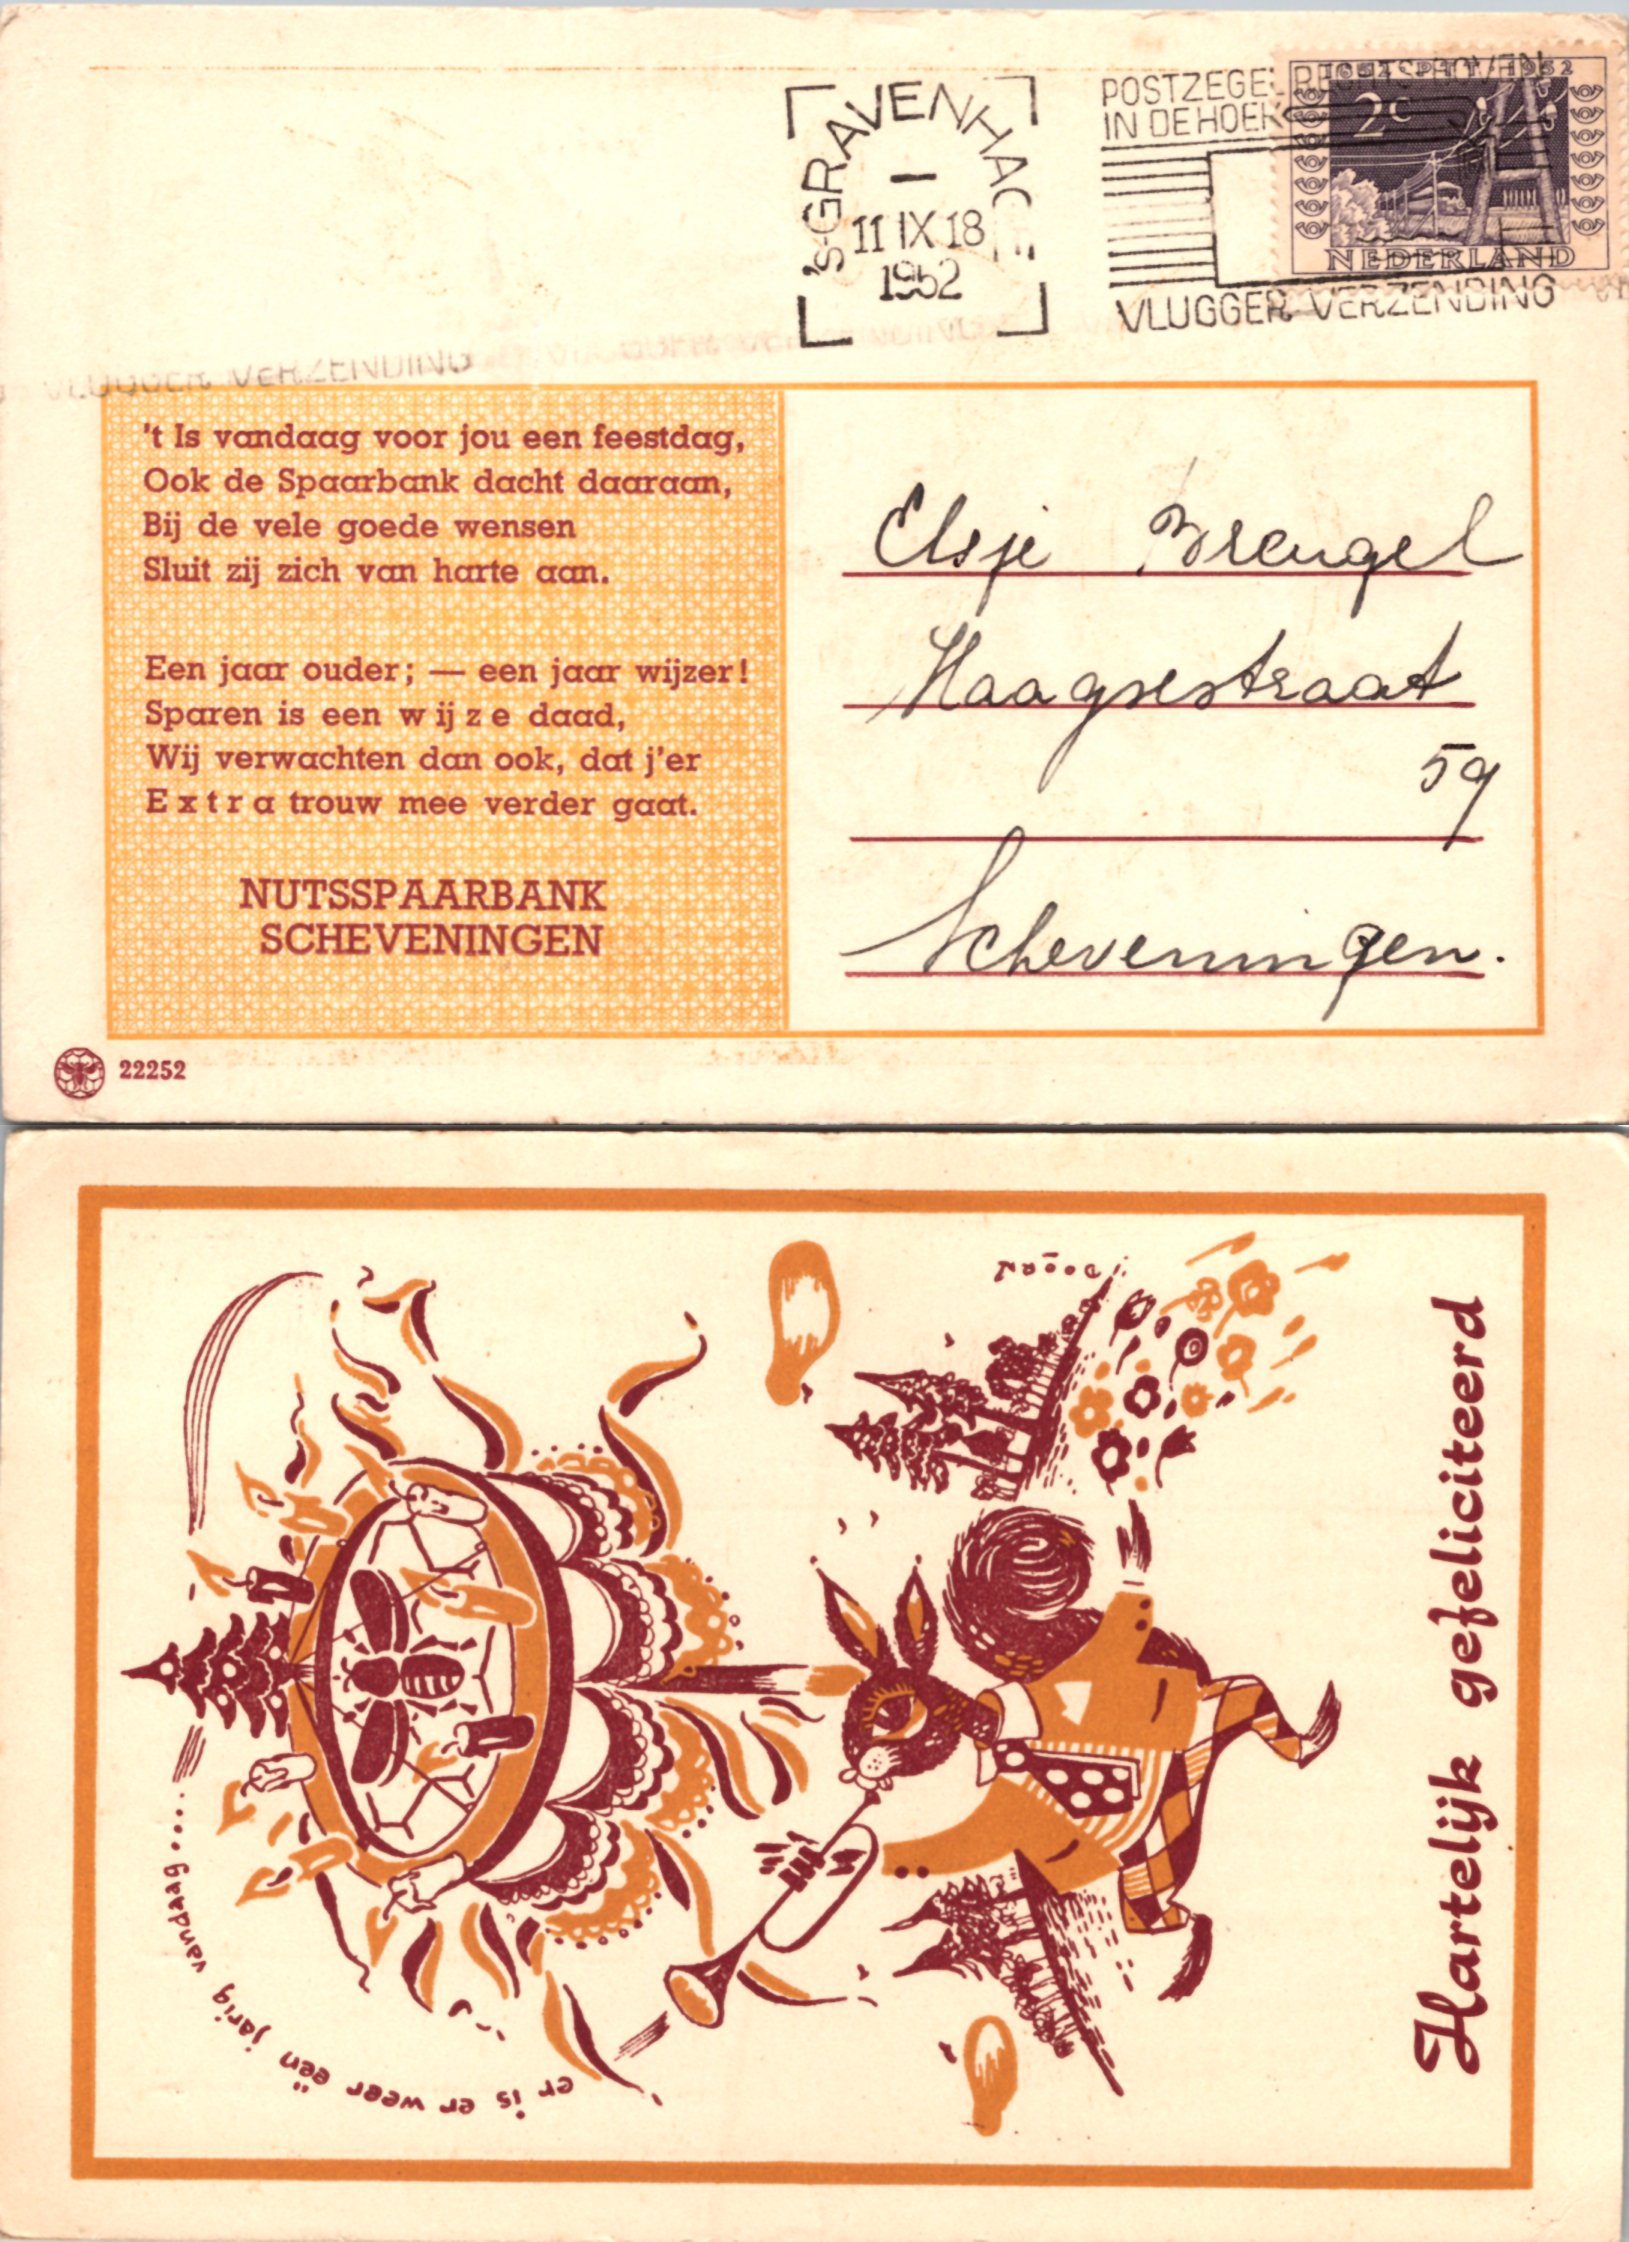 'S-GRAVENHAGE
1
11 IX 18
1952
POSTZEGEL RECHTSBOVEN
IN DE HOEK
VLUGGER VERZENDING
1852 1952
2c
NEDERLAND
VLUGGER VERZENDING
't Is vandaag voor jou een feestdag,
Ook de Spaarbank dacht daaraan,
Bij de vele goede wensen
Sluit zij zich van harte aan.
Een jaar ouder; — een jaar wijzer!
Sparen is een wijze daad,
Wij verwachten dan ook, dat j'er
Extra trouw mee verder gaat.
NUTSSPAARBANK
SCHEVENINGEN
Elsje Brengel
Haagsestraat
59
Scheveningen.
22252
er is er weer één jarig vandaag.....
Hartelijk gefeliciteerd